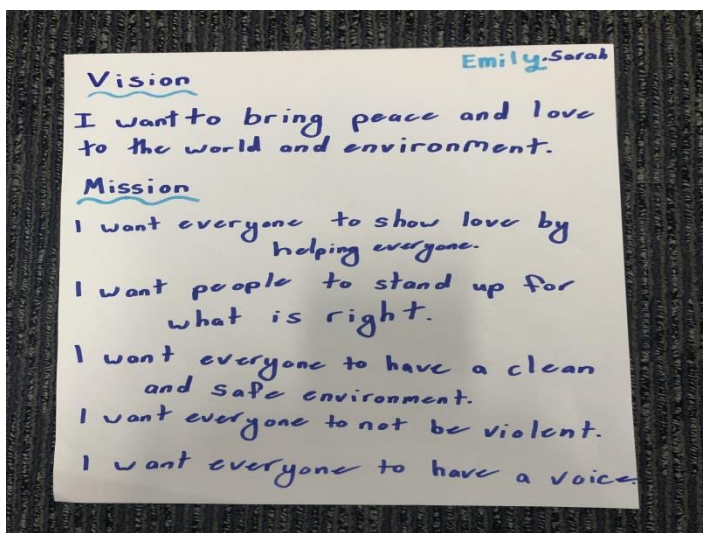 Emily.Sarah
Vision
I want to bring peace and love
to the world and environment.
Mission
I want everyone to show love by
helping everyone.
I want people to stand up for
what is right.
I want everyone to have a clean
and safe environment.
I want everyone to not be violent.
I want everyone to have a voice.